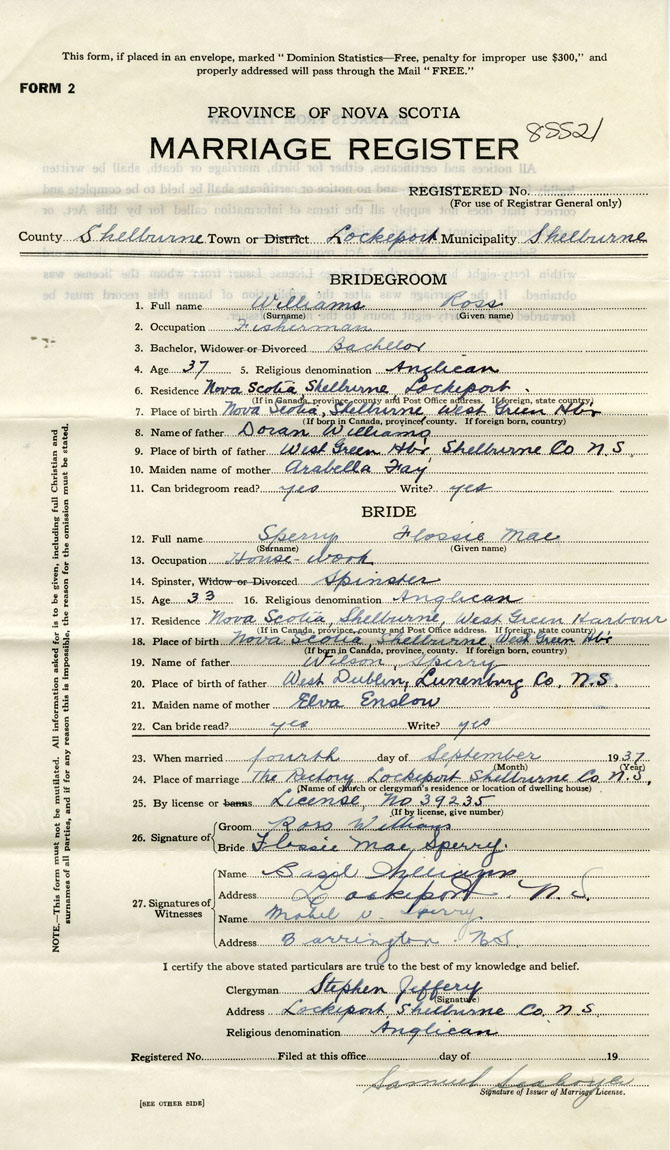 This form, if placed in an envelope, marked "Dominion Statistics—Free, penalty for improper use $300," and
properly addressed will pass through the Mail "FREE."
FORM 2
PROVINCE OF NOVA SCOTIA
MARRIAGE REGISTER 85521
REGISTERED No.
(For use of Registrar General only)
County Shelburne Town or District Lockeport Municipality Shelburne
BRIDEGROOM
1. Full name Williams Ross
(Surname) (Given name)
2. Occupation Fisherman
3. Bachelor, Widower or Divorced Bachelor
4. Age 37 5. Religious denomination Anglican
6. Residence Nova Scotia, Shelburne, Lockeport.
(If in Canada, province, county and Post Office address. If foreign, state country)
7. Place of birth Nova Scotia, Shelburne, West Green Hbr
(If born in Canada, province, county. If foreign born, country)
8. Name of father Doran Williams
9. Place of birth of father West Green Hbr Shelburne Co N.S.
10. Maiden name of mother Arabella Fay
11. Can bridegroom read? yes Write? yes
BRIDE
12. Full name Sperry Flossie Mae
(Surname) (Given name)
13. Occupation House-work
14. Spinster, Widow or Divorced Spinster
15. Age 33 16. Religious denomination Anglican
17. Residence Nova Scotia, Shelburne, West Green Harbour
(If in Canada, province, county and Post Office address. If foreign, state country)
18. Place of birth Nova Scotia, Shelburne, West Green Hbr
(If born in Canada, province, county. If foreign born, country)
19. Name of father Wilson Sperry
20. Place of birth of father West Dublin, Lunenburg Co. N.S.
21. Maiden name of mother Elva Enslow
22. Can bride read? yes Write? yes
23. When married fourth day of September 1937
(Month) (Year)
24. Place of marriage The Rectory Lockeport Shelburne Co N.S.
(Name of church or clergyman's residence or location of dwelling house)
25. By license or banns License, No 39235
(If by license, give number)
26. Signature of Groom Ross Williams
Bride Flossie Mae Sperry.
27. Signatures of Witnesses
Name Basil Williams
Address Lockeport. N.S.
Name Sperry
Address Barrington N.S.
I certify the above stated particulars are true to the best of my knowledge and belief.
Clergyman Stephen Jeffery
(Signature)
Address Lockeport, Shelburne Co. N.S.
Religious denomination Anglican
Registered No. Filed at this office day of 19
Samuel
Signature of Issuer of Marriage License.
[SEE OTHER SIDE]
NOTE.—This form must not be mutilated. All information asked for is to be given, including full Christian and
surnames of all parties, and if for any reason this is impossible, the reason for the omission must be stated.